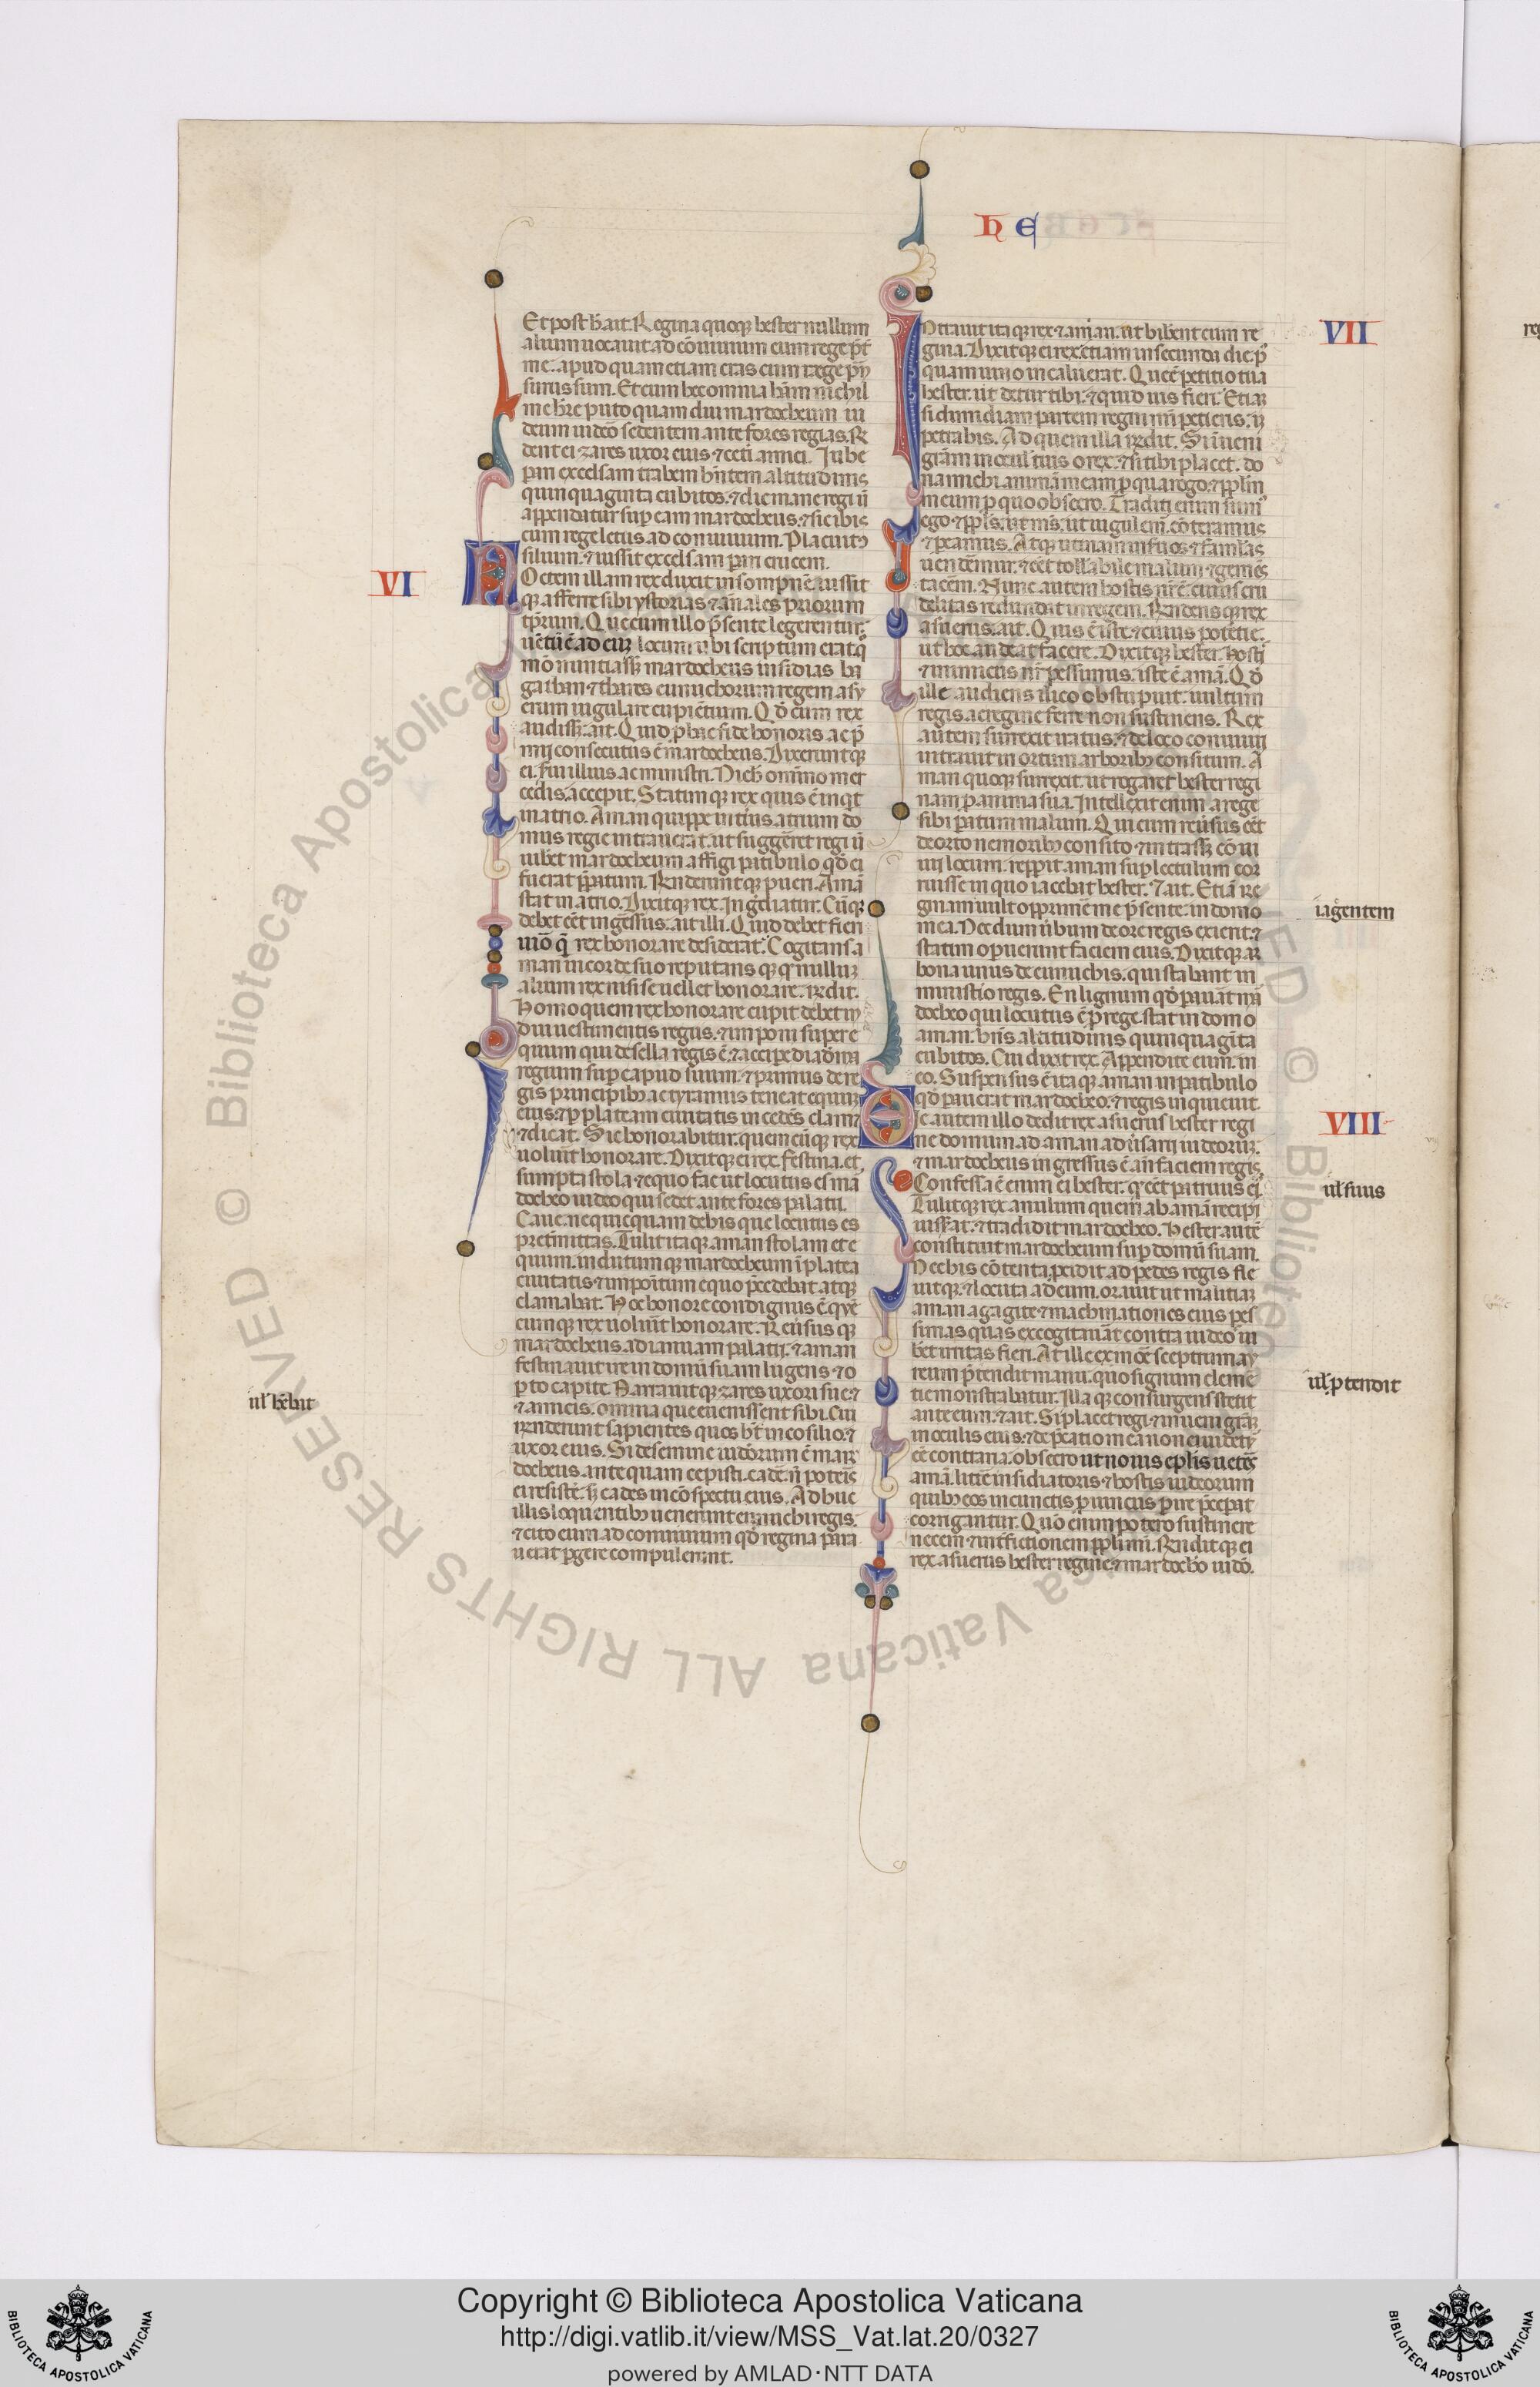 HE
Et post h̄ ait. Regina quoqꝫ hester nullum
alium uocauit ad cōuiuium cum rege p̄t
me. apud quam etiam cras cum rege p̄n
surus sum. Et cum hec omnia hām nichil
me hr̄e puto quam diu mardocheum iu
deum uideo sedentem ante fores regias. R̄
dent ei zares uxor eius ⁊ cet̄i amici. Iube
p̄ari excelsam trabem hn̄tem altitudinis
quinquaginta cubitos. ⁊ dic mane regi ut̄
appendatur suꝑ eam mardocheus. ⁊ sic ibis
cum rege letus ad conuiuium. Placuit 
silium. ⁊ iussit excelsam p̄ari crucem.
VI
Noctem illam rex duxit in sompnē iussit
qꝫ afferre sibi ystorias ⁊ annales priorum
tp̄rum. Que cum illo p̄sente legerentur.
uētū ē ad eūꝫ locum ubi scriptum erat qͦ
mͦ nuntiass̄ mardocheus insidias ba
gathan ⁊ thares eunuchorum regem asu
erum iugulare cupiētium. Qͦd cum rex
audiss̄. ait. Quid ꝓ hac fide honoris ac p̄
mij consecutus ē mardocheus. Dixeruntqꝫ
ei. s̄ui illius ac ministri. Nich̄ omnino mer
cedis accepit. Statimqꝫ rex quis ē inqͥt
in atrio. Aman quippe int̄ius atrium do
mus regie intrauerat. ut suggereret regi ut̄
iub̄et mardocheum affigi patibulo qͦd ei
fuerat p̄patum. Rn̄deruntqꝫ pueri. Amā
stat in atrio. Dixitqꝫ rex. Ingͣdiatur. Cūqꝫ
debet eēt ingressus. ait illi. Quid debet fieri
uiro q̄ rex honorare desiderat. Cogitans a
man in corde suo reputans qꝫ qͦ nulluꝫ
alium rex nisi se uellet honorare. r̄ndit.
Homo quem rex honorare cupit debet in
dui uestimentis regiis. ⁊ imponi super e
quum qui de sella regis ē. ⁊ accipe diadema
regium suꝑ capud suum. ⁊ primus de re
gis principibꝫ ac tyrannis teneat equuꝫ
eius. ⁊ ꝑ plateam ciuitatis incedēs clam̄
⁊ dicat. Sic honorabitur. quemcūqꝫ rex
uoluīt honorare. Dixitqꝫ ei rex. festina. et
sumpta stola ⁊ equo fac ut locutus es mar
docheo iudeo qui sedet ante fores palatii.
Caue ne quicquam de his que locutus es
pretermittas. Tulit itaqꝫ aman stolam et e
quum. indutumqꝫ mardocheum ī platea
ciuitatis ⁊ impoītum equo p̄cedebat. atqꝫ
clamabat. Hoc honore condignus ē. qͤ
cumqꝫ rex uoluīt honorare. Reuersusqꝫ
mardocheus ad ianuam palatij. ⁊ aman
festinauit ire in domū suam lugens ⁊ o
ꝑto capite. Narrauitqꝫ zares uxori sue. ⁊
⁊ amicis. omnia que euenissent sibi. Cui
r̄nderunt sapientes quos hb̄t in cosilio. ⁊
uxor eius. Si de semine iudeorum ē mar
docheus ante quem cepisti cadē n̄ poteris
ei resistē. sꝫ cades in cōspectu eius. Adhuc
illis loquentibꝫ uenerunt eunuchi regis.
⁊ cito eum ad conuiuium qͦd regina para
uerat ꝑgere compulerunt.
ul̄ hēbat
VII
Intrauit itaqꝫ rex ⁊ aman. ut biberent cum re
gina. Dixitqꝫ ei rex. etiam in secunda die. pͥ
quam uino incaluerat. Que ē petitio tua
hester. ut detur tibi. ⁊ quid uis fieri. Etiā
si dimidiam partem regni mi petieris. ī
petrabis. Ad quem illa r̄ndit. Si īueni
grām in oculis tuis o rex. ⁊ si tibi placet. do
na michi animā meam ꝓ qua rogo. ⁊ pp̄lm̄
meum ꝓ quo obsecro. Traditi enim sumꝰ
ego ⁊ pp̄ls meus. ut iugulemur. cōteramus
⁊ ꝑeamus. Atqꝫ utinam in suos ⁊ famulas
uendēmur. ⁊ eēt tollabile malum. ⁊ gemēs
tacerē. Nunc autem hostis nr̄ ē. cuius cru
delitas redundat in regem. Rn̄densqꝫ rex
asuerus. ait. Quis ē iste. ⁊ cuius potētie.
ut hoc audeat facere. Dixitqꝫ hester. hostis
⁊ inimicus nr̄ pessimus. iste ē amā. Qͦd
ille audiens ilico obstupuit. uultum
regis ac regine ferre non sustinens. Rex
autem surrexit iratus. ⁊ de loco conuiuij
intrauit in ortum arboribꝫ consitum. A
man quoqꝫ surrexit. ut rogaret hester regi
nam ꝓ anima sua. Intellexit enim a rege
sibi p̄atum malum. Qui cum reūsus eēt
de orto nemoribꝫ consito ⁊ intrass̄ cōui
uij locum. repp̄it aman suꝑ lectulum cor
ruisse in quo iacebat hester. ⁊ ait. Etiā re
ginam uult opprimē me p̄sente in domo
mea. Necdum ūbum de ore regis exierat. ⁊
statim opuerunt faciem eius. Dixitqꝫ ar
bona unus de eunuchis. qui stabant in
ministio regis. En lignum qͦd p̄auāt mar
docheo qui locutus ē ꝓ rege. stat in domo
aman. hn̄s altitudinis quinquagīta
cubitos. Cui dixit rex. Appendite eum. in
eo. Suspensus ē itaqꝫ aman in patibulo
qͦd ꝑauerat mardocheo. ⁊ regis ira quieuit.
iag̊entem
VIII
Die autem illo dedit rex asuerus hester regi
ne domum ad aman aduersarij iudeorū.
⁊ mardocheus ingressus ē añ faciem regis.
Confessa ē enim ei hester. qͦ eēt patruus ei.
Tulitqꝫ rex anulum quem ab amā recipi
iusserat. ⁊ tradidit mardocheo. Hester autē
constituit mardocheum suꝑ domū suam.
ul̄ suus
Nec his cōtenta. ꝓcidit ad pedes regis. fle
uitqꝫ. ⁊ locuta ad eum. orauit ut malitiaꝫ
aman agagite ⁊ machinationes eius pes
simas quas excogitauāt contra iudeos iu
bēt irritas fieri. At ille ex more sceptrum au
reum p̄tendit manu. quo signum clemē
tie monstrabatur. Illaqꝫ consurgens stetit
ante eum. ⁊ ait. Si placet regi ⁊ inueni grāꝫ
in oculis eius. ⁊ de p̄catio mea non ei uidetur
eē contraria. obsecro ut nouis eplis uetēs
amā. litterē insidiatoris ⁊ hostis iudeorum
quibꝫ eos in cunctis ꝓuinciis ꝑire p̄cepat
corrigantur. Quō enim potero sustinere
necem ⁊ int̄fectionem pp̄li mi. Rn̄ditqꝫ ei
rex asuerus hester regine. ⁊ mardocho iudō.
ul̄. ꝓtendit
Copyright © Biblioteca Apostolica Vaticana
http://digi.vatlib.it/view/MSS_Vat.lat.20/0327
powered by AMLAD·NTT DATA
BIBLIOTECA APOSTOLICA VATICANA
BIBLIOTECA APOSTOLICA VATICANA
© Biblioteca Apostolica Vaticana ALL RIGHTS RESERVED